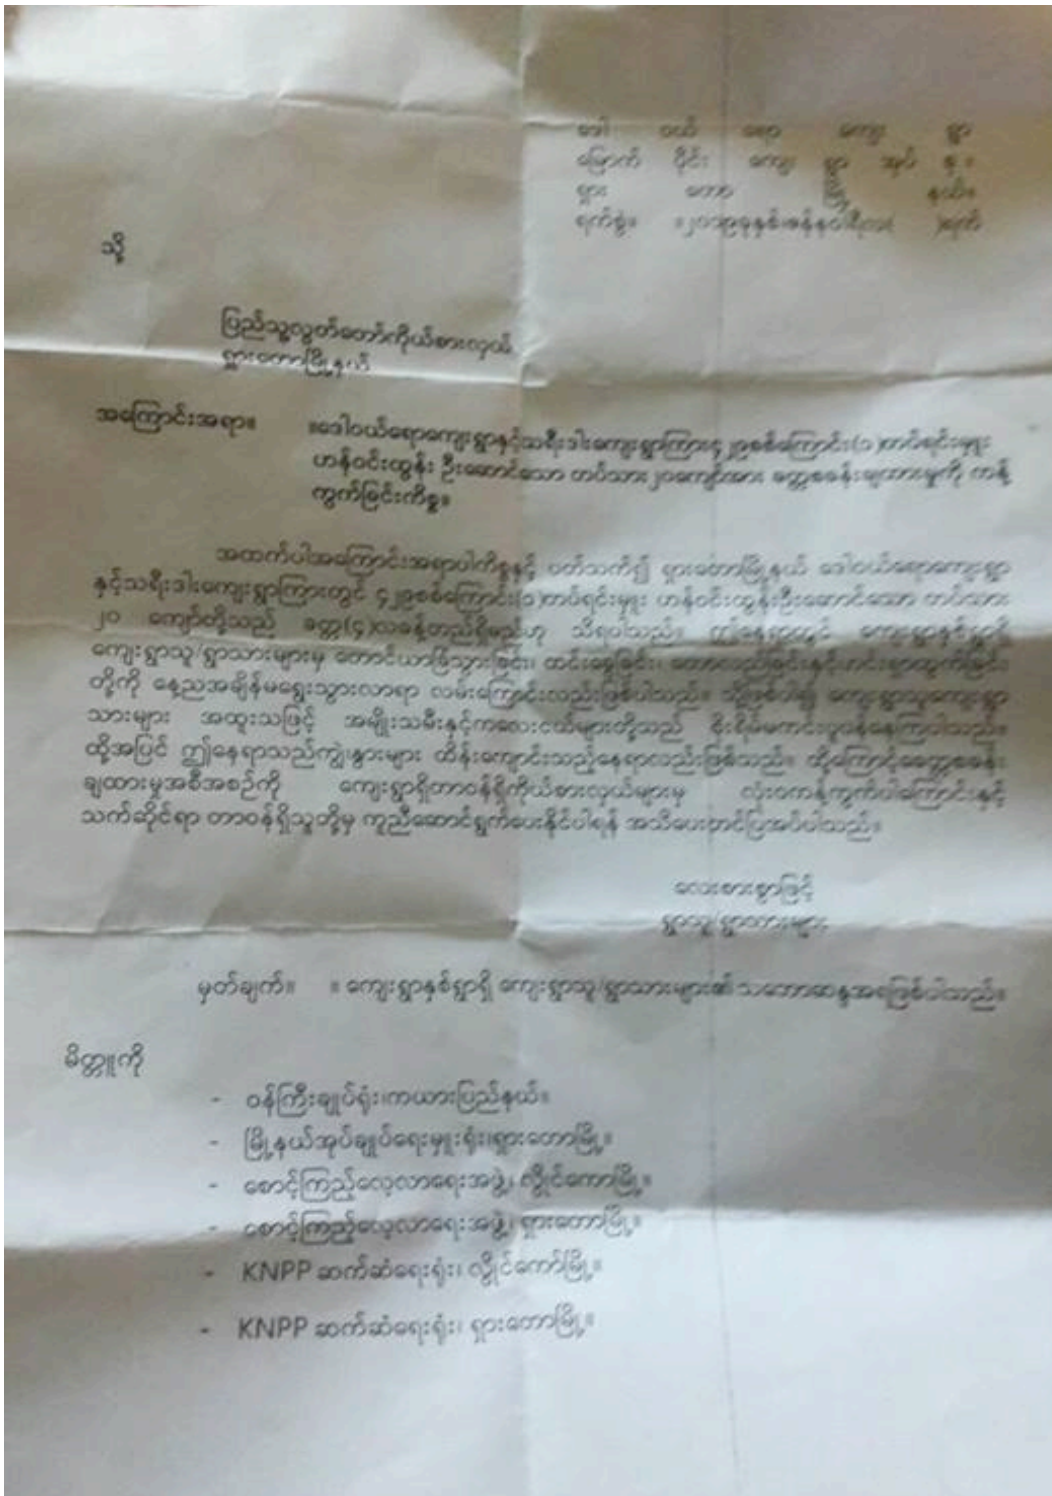 ဒေါ ဝယ် ရော ကျေး ရွာ
မြောက် ပိုင်း ကျေး ရွာ အုပ် စု ။
ရှား တော မြို့ နယ်။
ရက်စွဲ။ ။၂၀၁၉ခုနှစ်၊ဇန်နဝါရီလ( )ရက်
သို့
ပြည်သူ့လွှတ်တော်ကိုယ်စားလှယ်
ရှားတောမြို့နယ်
အကြောင်းအရာ။ ။ဒေါဝယ်ရောကျေးရွာနှင့်သရီးဒါးကျေးရွာကြား၄၂၉စစ်ကြောင်း(၁)တပ်ရင်းမှူး
ဟန်ဝင်းထွန်း ဦးဆောင်သော တပ်သား၂၀ကျော်အား ခေတ္တစခန်းချထားမှုကို ကန့်
ကွက်ခြင်းကိစ္စ။
အထက်ပါအကြောင်းအရာပါကိစ္စနှင့် ပတ်သက်၍ ရှားတောမြို့နယ် ဒေါဝယ်ရောကျေးရွာ
နှင့်သရီးဒါးကျေးရွာကြားတွင် ၄၂၉စစ်ကြောင်း(၁)တပ်ရင်းမှူး ဟန်ဝင်းထွန်းဦးဆောင်သော တပ်သား
၂၀ ကျော်တို့သည် ခေတ္တ(၄)လခန့်တည်ရှိမည်ဟု သိရပါသည်။ ဤနေရာတွင် ကျေးရွာနှစ်ရွာရှိ
ကျေးရွာသူ/ရွာသားများမှ တောင်ယာခြံသွားခြင်း၊ ထင်းခွေခြင်း၊ တောလည်ခြင်းနှင့်ဟင်းရွာထွက်ခြင်း
တို့ကို နေ့ညအချိန်မရွေးသွားလာရာ လမ်းကြောင်းလည်းဖြစ်ပါသည်။ သို့ဖြစ်ပါ၍ ကျေးရွာသူကျေးရွာ
သားများ အထူးသဖြင့် အမျိုးသမီးနှင့်ကလေးငယ်များတို့သည် စိုးရိမ်မကင်းပူပန်နေကြပါသည်။
ထို့အပြင် ဤနေရာသည်ကျွဲ၊နွားများ ထိန်းကျောင်းသည့်နေရာလည်းဖြစ်သည်။ ထို့ကြောင့်ခေတ္တစခန်း
ချထားမှုအစီအစဉ်ကို ကျေးရွာရှိတာဝန်ရှိကိုယ်စားလှယ်များမှ လုံးဝကန့်ကွက်ပါကြောင်းနှင့်
သက်ဆိုင်ရာ တာဝန်ရှိသူတို့မှ ကူညီဆောင်ရွက်ပေးနိုင်ပါရန် အသိပေးတင်ပြအပ်ပါသည်။
လေးစားစွာဖြင့်
ရွာသူ/ရွာသားများ
မှတ်ချက်။ ။ ကျေးရွာနှစ်ရွာရှိ ကျေးရွာသူ/ရွာသားများ၏သဘောဆန္ဒအရဖြစ်ပါသည်။
မိတ္တူကို
- ဝန်ကြီးချုပ်ရုံး၊ကယားပြည်နယ်။
- မြို့နယ်အုပ်ချုပ်ရေးမှူးရုံး၊ရှားတောမြို့။
- စောင့်ကြည့်လေ့လာရေးအဖွဲ့၊ လွိုင်ကော်မြို့။
- စောင့်ကြည့်လေ့လာရေးအဖွဲ့၊ ရှားတောမြို့။
- KNPP ဆက်ဆံရေးရုံး၊ လွိုင်ကော်မြို့။
- KNPP ဆက်ဆံရေးရုံး၊ ရှားတောမြို့။